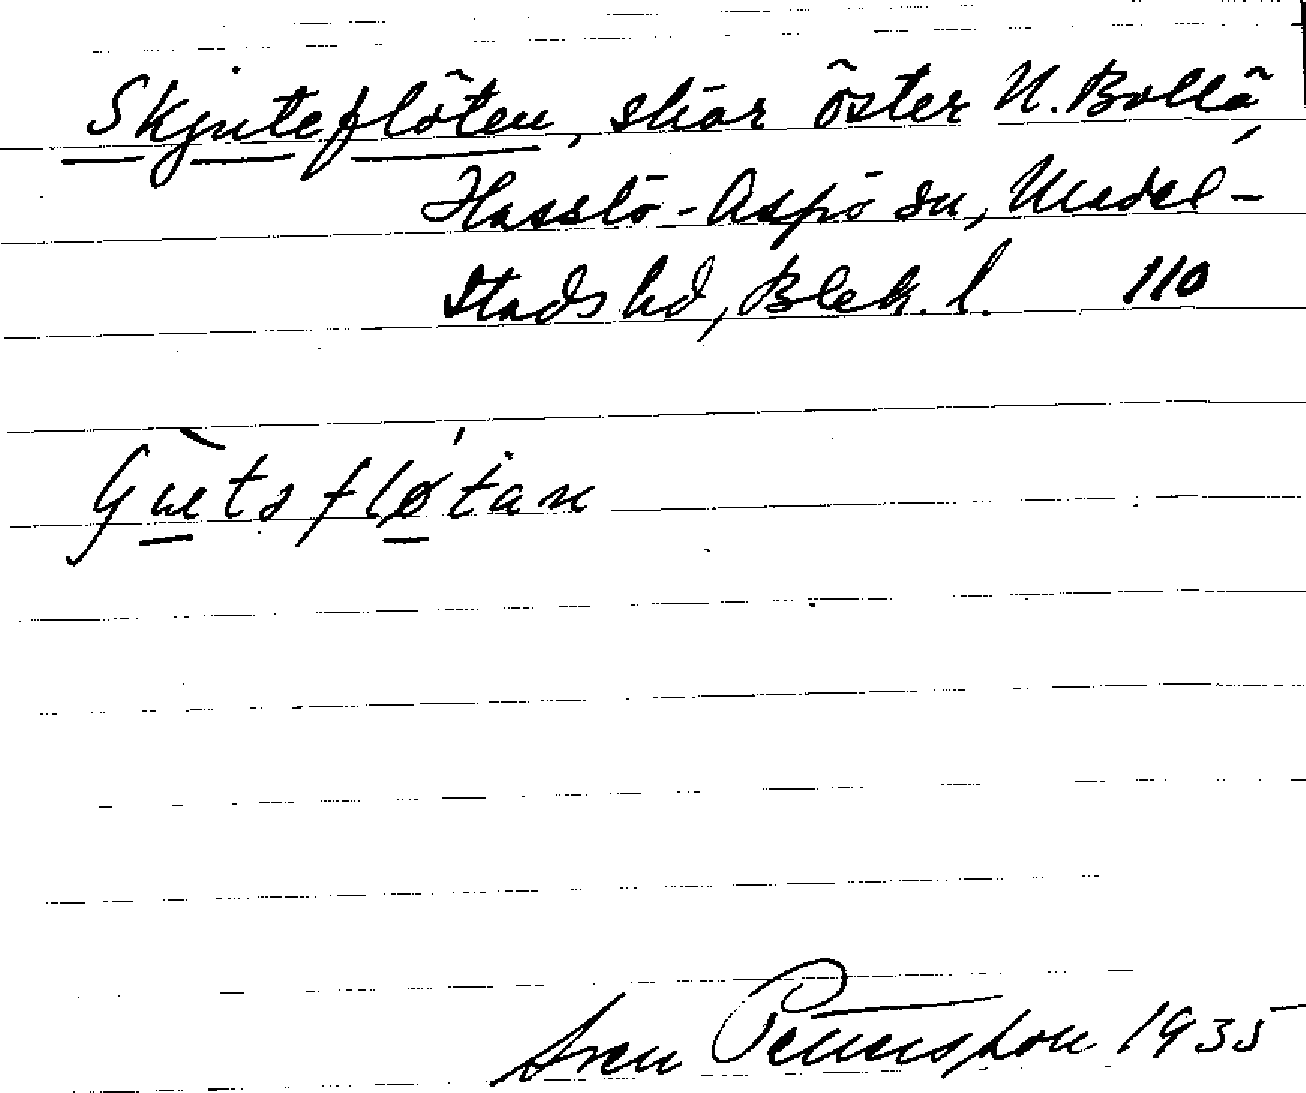 Skjuteflöten, skär öster N. Bollö,
Hasslö-Aspö sn, Medel-
stads hd, Blek. l. 110
Sven 1935